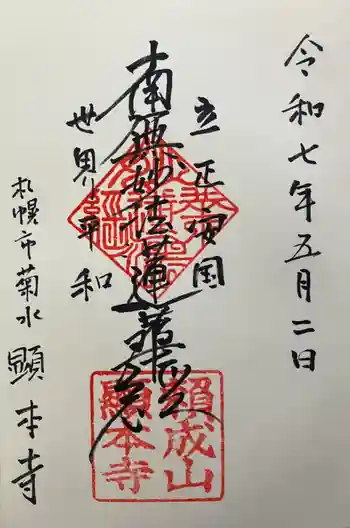 令和七年五月二日
立正安国
南無妙法蓮華経
世界平和
札幌市菊水
顯本寺
賴成山
顯本寺